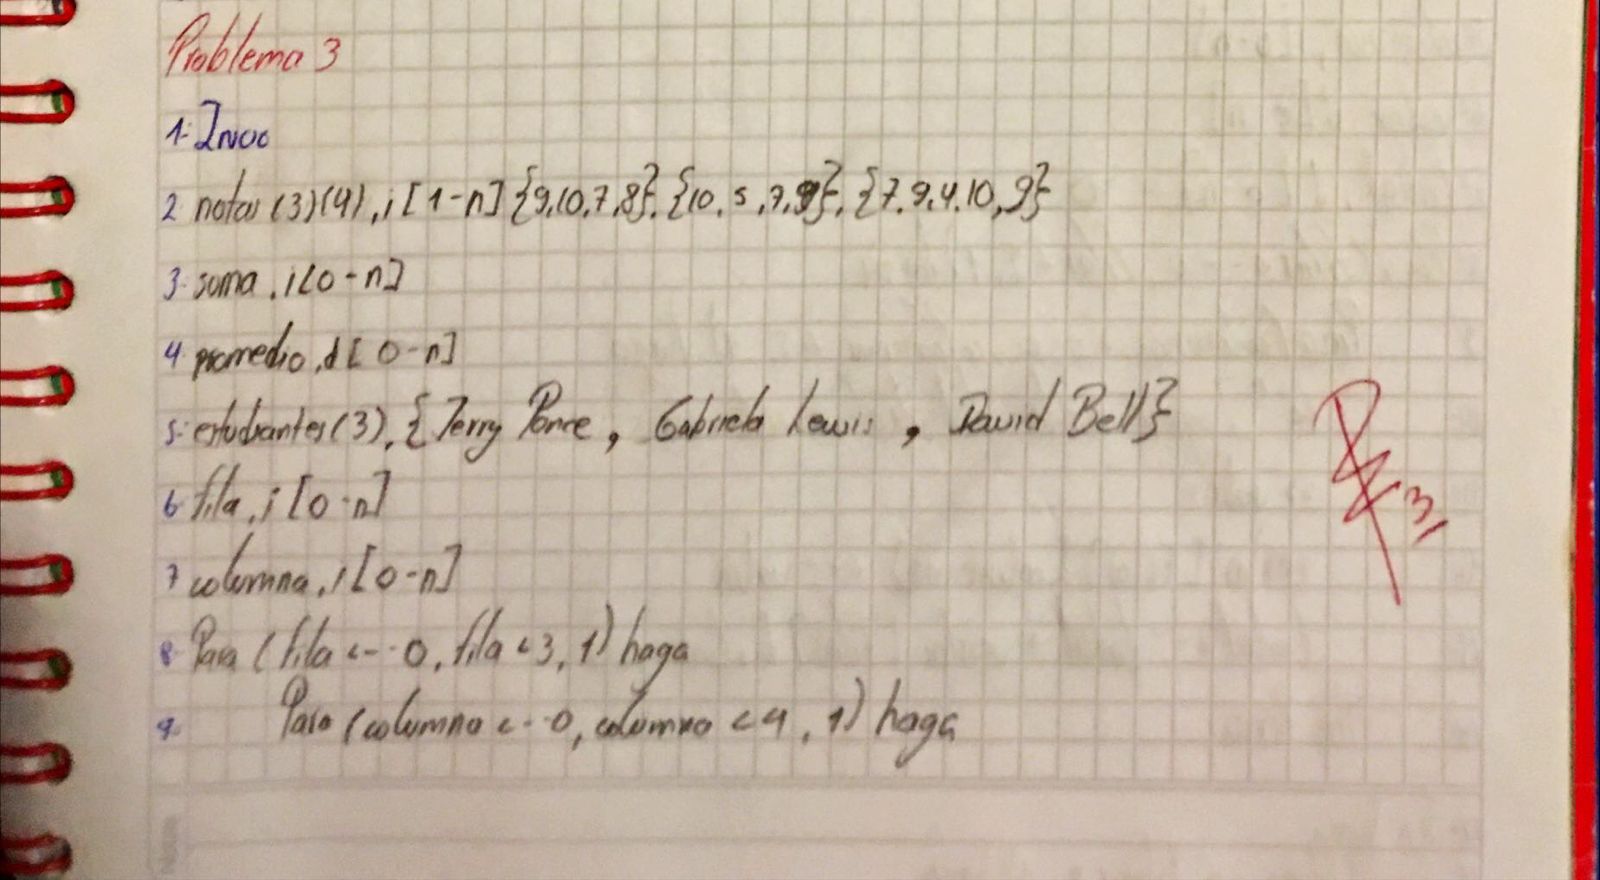 Problema 3
1. Inicio
2 notas (3)(4), i [1-n] {9,10,7,8}, {10, 5, 7, 9}, {7,9,4,10,9}
3. suma, i[0-n]
4. promedio, d [0-n]
5. estudiantes(3), {Terry Ponce, Gabriela Lewis, David Bell}
6. fila, i [0-n]
7 columna, i [0-n]
8. Para (fila <-- 0, fila <3, 1) haga
9. Para (columna <-- 0, columna <4, 1) haga